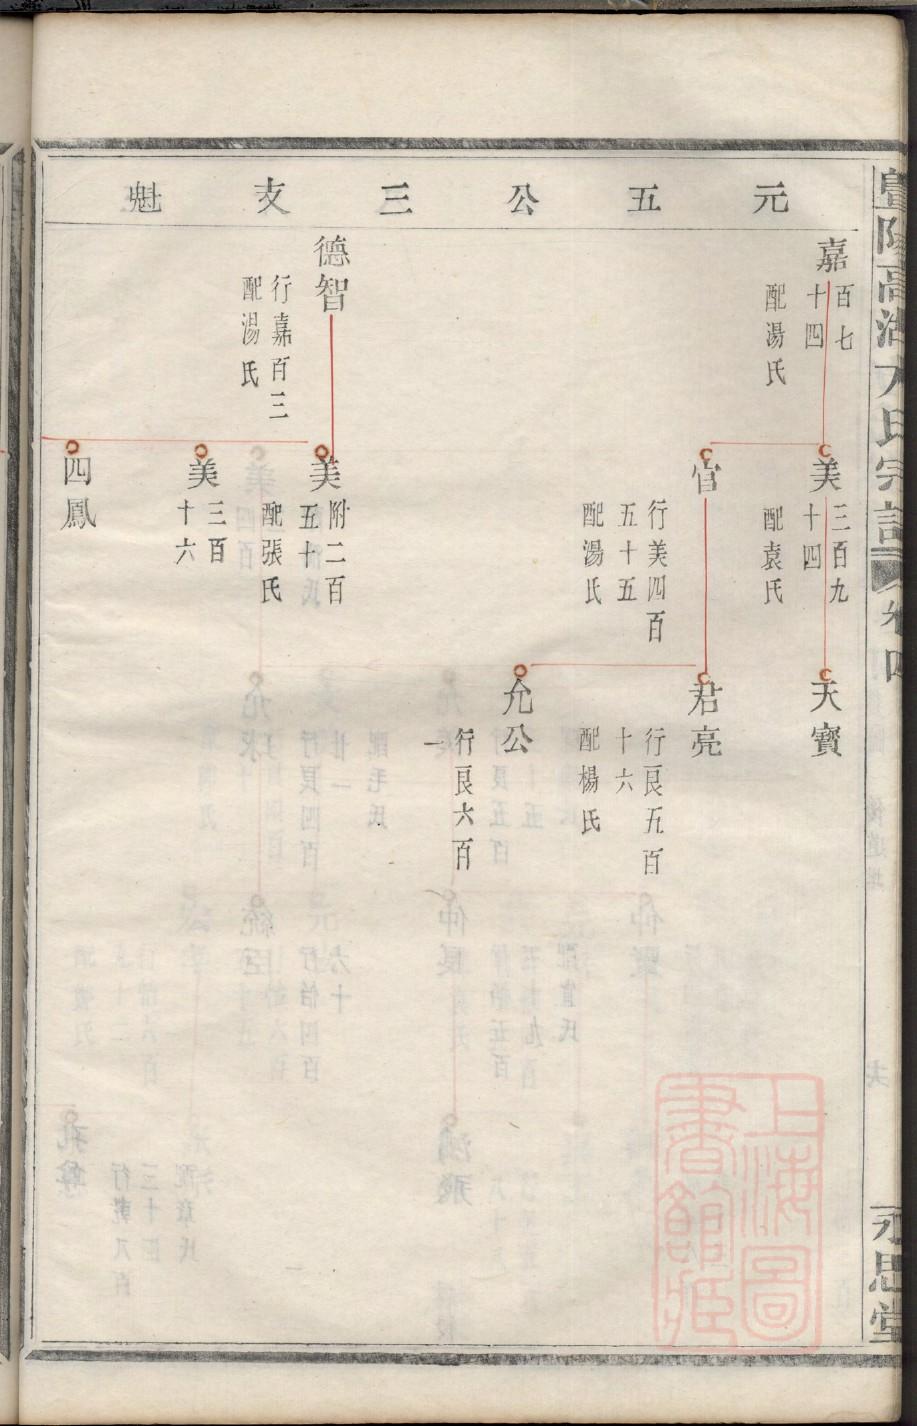 元五公三支魁
嘉
百七
十四
配湯氏
德智
行嘉百三
配湯氏
美
三百九
十四
配袁氏
官
行美四百
五十五
配湯氏
美
附二百
五十
配張氏
美
三百
十六
四鳳
天寶
君亮
行良五百
十六
配楊氏
允公
行良六百
一
卷四
永思堂
上海圖
書館